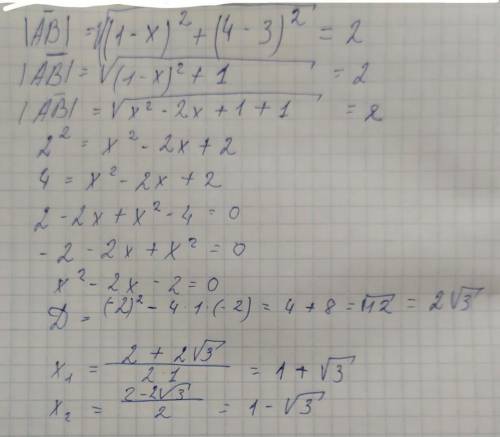 |AB| = √(1-x)² + (4-3)² = 2
|AB| = √(1-x)² + 1 = 2
|AB| = √x² - 2x + 1 + 1 = 2
2² = x² - 2x + 2
4 = x² - 2x + 2
2 - 2x + x² - 4 = 0
-2 - 2x + x² = 0
x² - 2x - 2 = 0
D = (-2)² - 4·1·(-2) = 4 + 8 = √12 = 2√3
x₁ = (2 + 2√3)/(2·1) = 1 + √3
x₂ = (2 - 2√3)/2 = 1 - √3